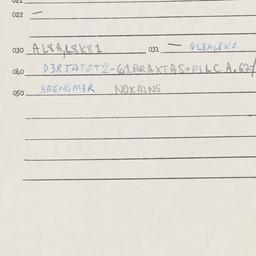 021
022 —
030 AL8A,L8K81 031 — QL8AL8K1
060 D3RTATOT2-61BRAXTAS+PILCA.62-/
050 BRENGM3R NOXAINS